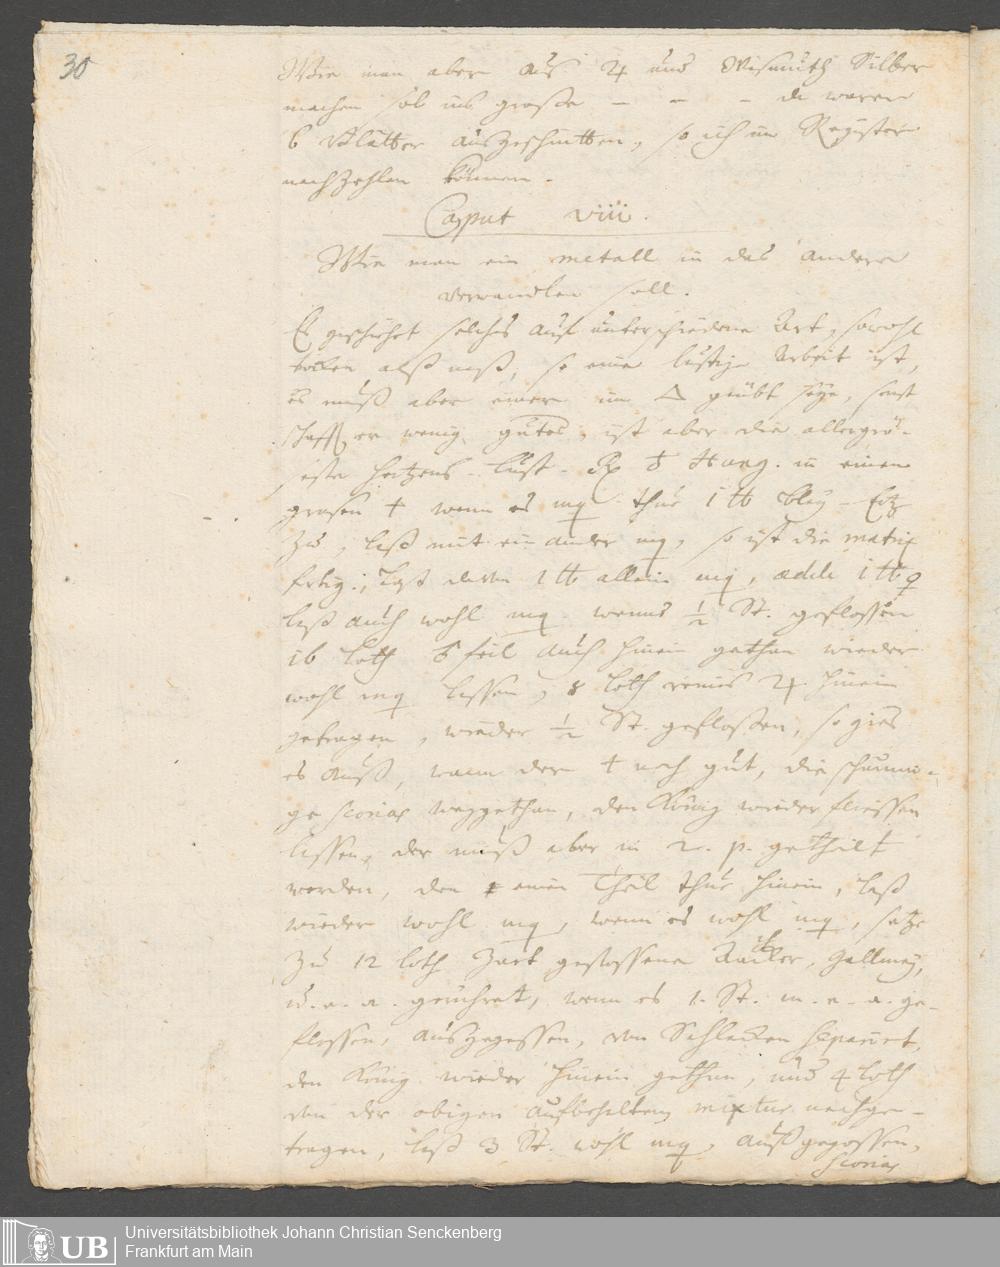 30
Wie man aber aus ♃ und Wismuth Silber
machen sol ins große – – – da waren
6 Blätter ausgeschnitten, so ich im Register
nachzehlen können.
Caput viii.
Wie man ein metall in das andere
verwandlen soll.
Es geschiehet solches auf unterschiedene Art, sowohl
troken alß naß, so eine lustige Arbeit ist,
es muß aber einer im △ geübt seyn, sonst
schafft er wenig gutes, ist aber die allergrö-
ßte Hertzens-Lust. ℞ ♁ Hung. in einen
grosen + wenn es thue 1 ℔ Bley-Ertz
zu, laß mit einander so ist die matrix
fertig; laß davon 1 ℔ allein adde 1 ℔ ♀
laß auch wohl wenns ½ St. geflossen
16 loth feil auch hinein gethan wieder
wohl lassen, 8 loth reines ♃ hinein
getragen, wieder ½ St. geflossen, so gies
es auß, wann der + noch gut, die
ge scorias weggethan, den König wieder fliessen
lassen, der muß aber in 2. p. getheilt
werden, den einen Theil thue hinein, laß
wieder wohl wenn es wohl setze
zu 12 loth zart gestossene Gallmey,
u. e. a. gerühret, wenn es 1. St. m. e. a. ge-
flossen, ausgegossen, von Schlacken separiret,
den König wieder hinein gethan, und 4 loth
von der obigen aufbehaltenen mixtur nachge-
tragen, laß 3 St. wohl außgegossen,
scorias
UB
Universitätsbibliothek Johann Christian Senckenberg
Frankfurt am Main